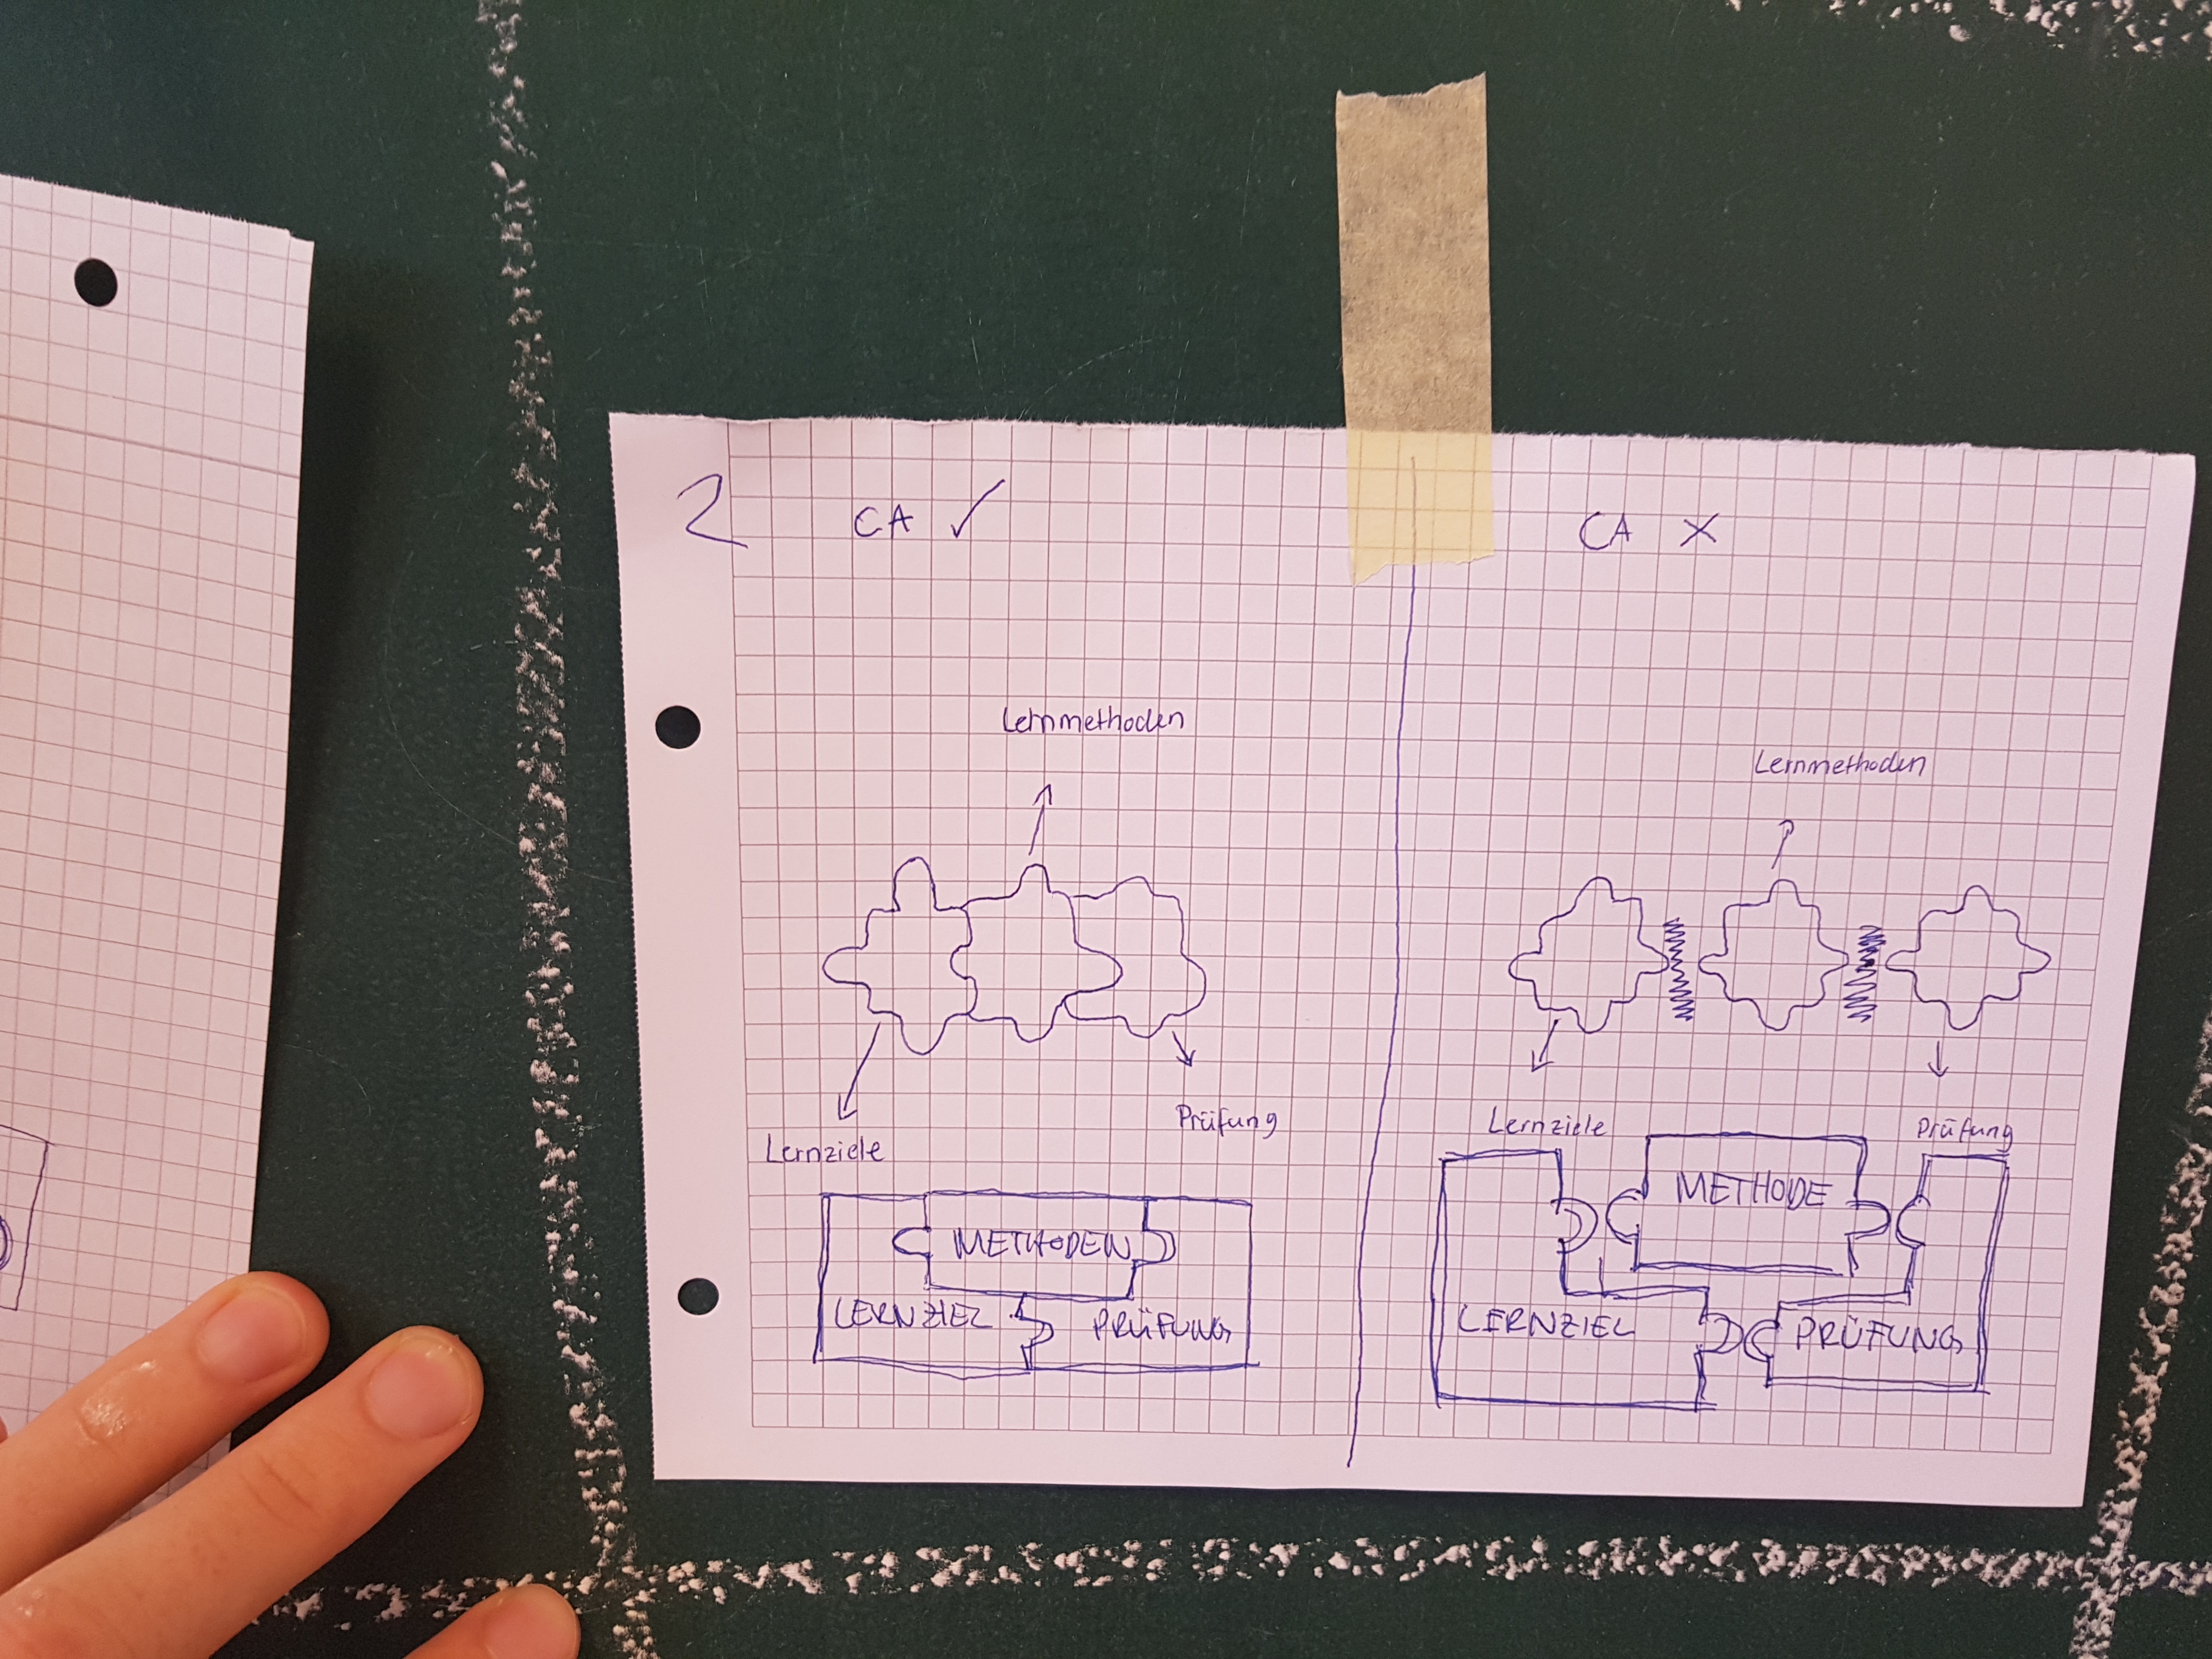 2
CA ✓
Lernmethoden
Lernziele
Prüfung
METHODEN
LERNZIEL
PRÜFUNG
CA X
Lernmethoden
Lernziele
Prüfung
METHODE
LERNZIEL
PRÜFUNG